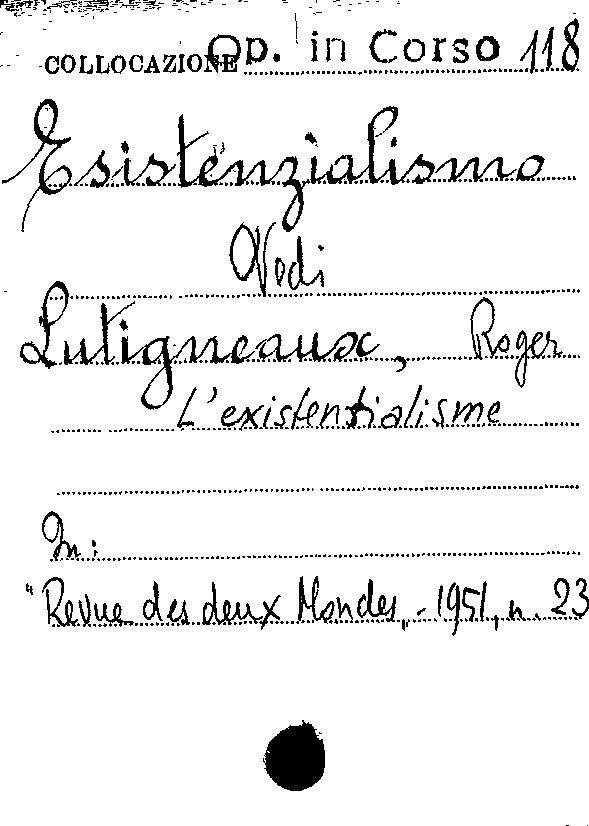 COLLOCAZIONE Op. in Corso 118
Esistenzialismo
Vedi
Lutigneaux, Roger
L'existentialisme
In:
"Revue des deux Mondes„ - 1951, n. 23